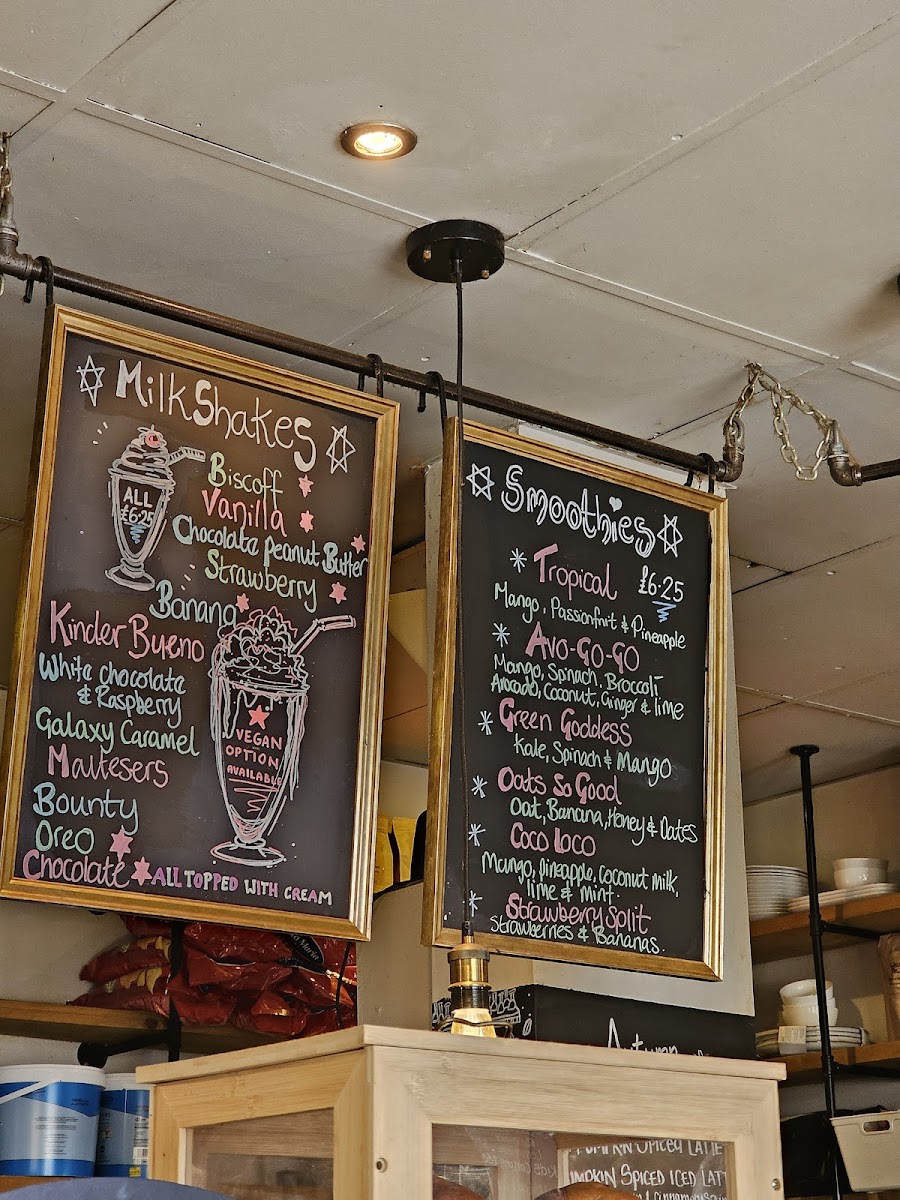 MilkShakes
ALL
£6.25
Biscoff
Vanilla
Chocolate peanut Butter
Strawberry
Banana
Kinder Bueno
White chocolate
& Raspberry
Galaxy Caramel
Maltesers
Bounty
Oreo
Chocolate
VEGAN
OPTION
AVAILABLE
ALL TOPPED WITH CREAM
Smoothies
Tropical £6.25
Mango, Passionfruit & Pineapple
Avo-Go-Go
Mango, Spinach, Broccoli
Avocado, Coconut, Ginger & lime
Green Goddess
Kale, Spinach & Mango
Oats So Good
Oat, Banana, Honey & Dates
Coco Loco
Mango, Pineapple, Coconut milk,
lime & Mint.
Strawberry Split
Strawberries & Bananas.
Autumn
PUMPKIN SPICED LATTE
PUMPKIN SPICED ICED LATT